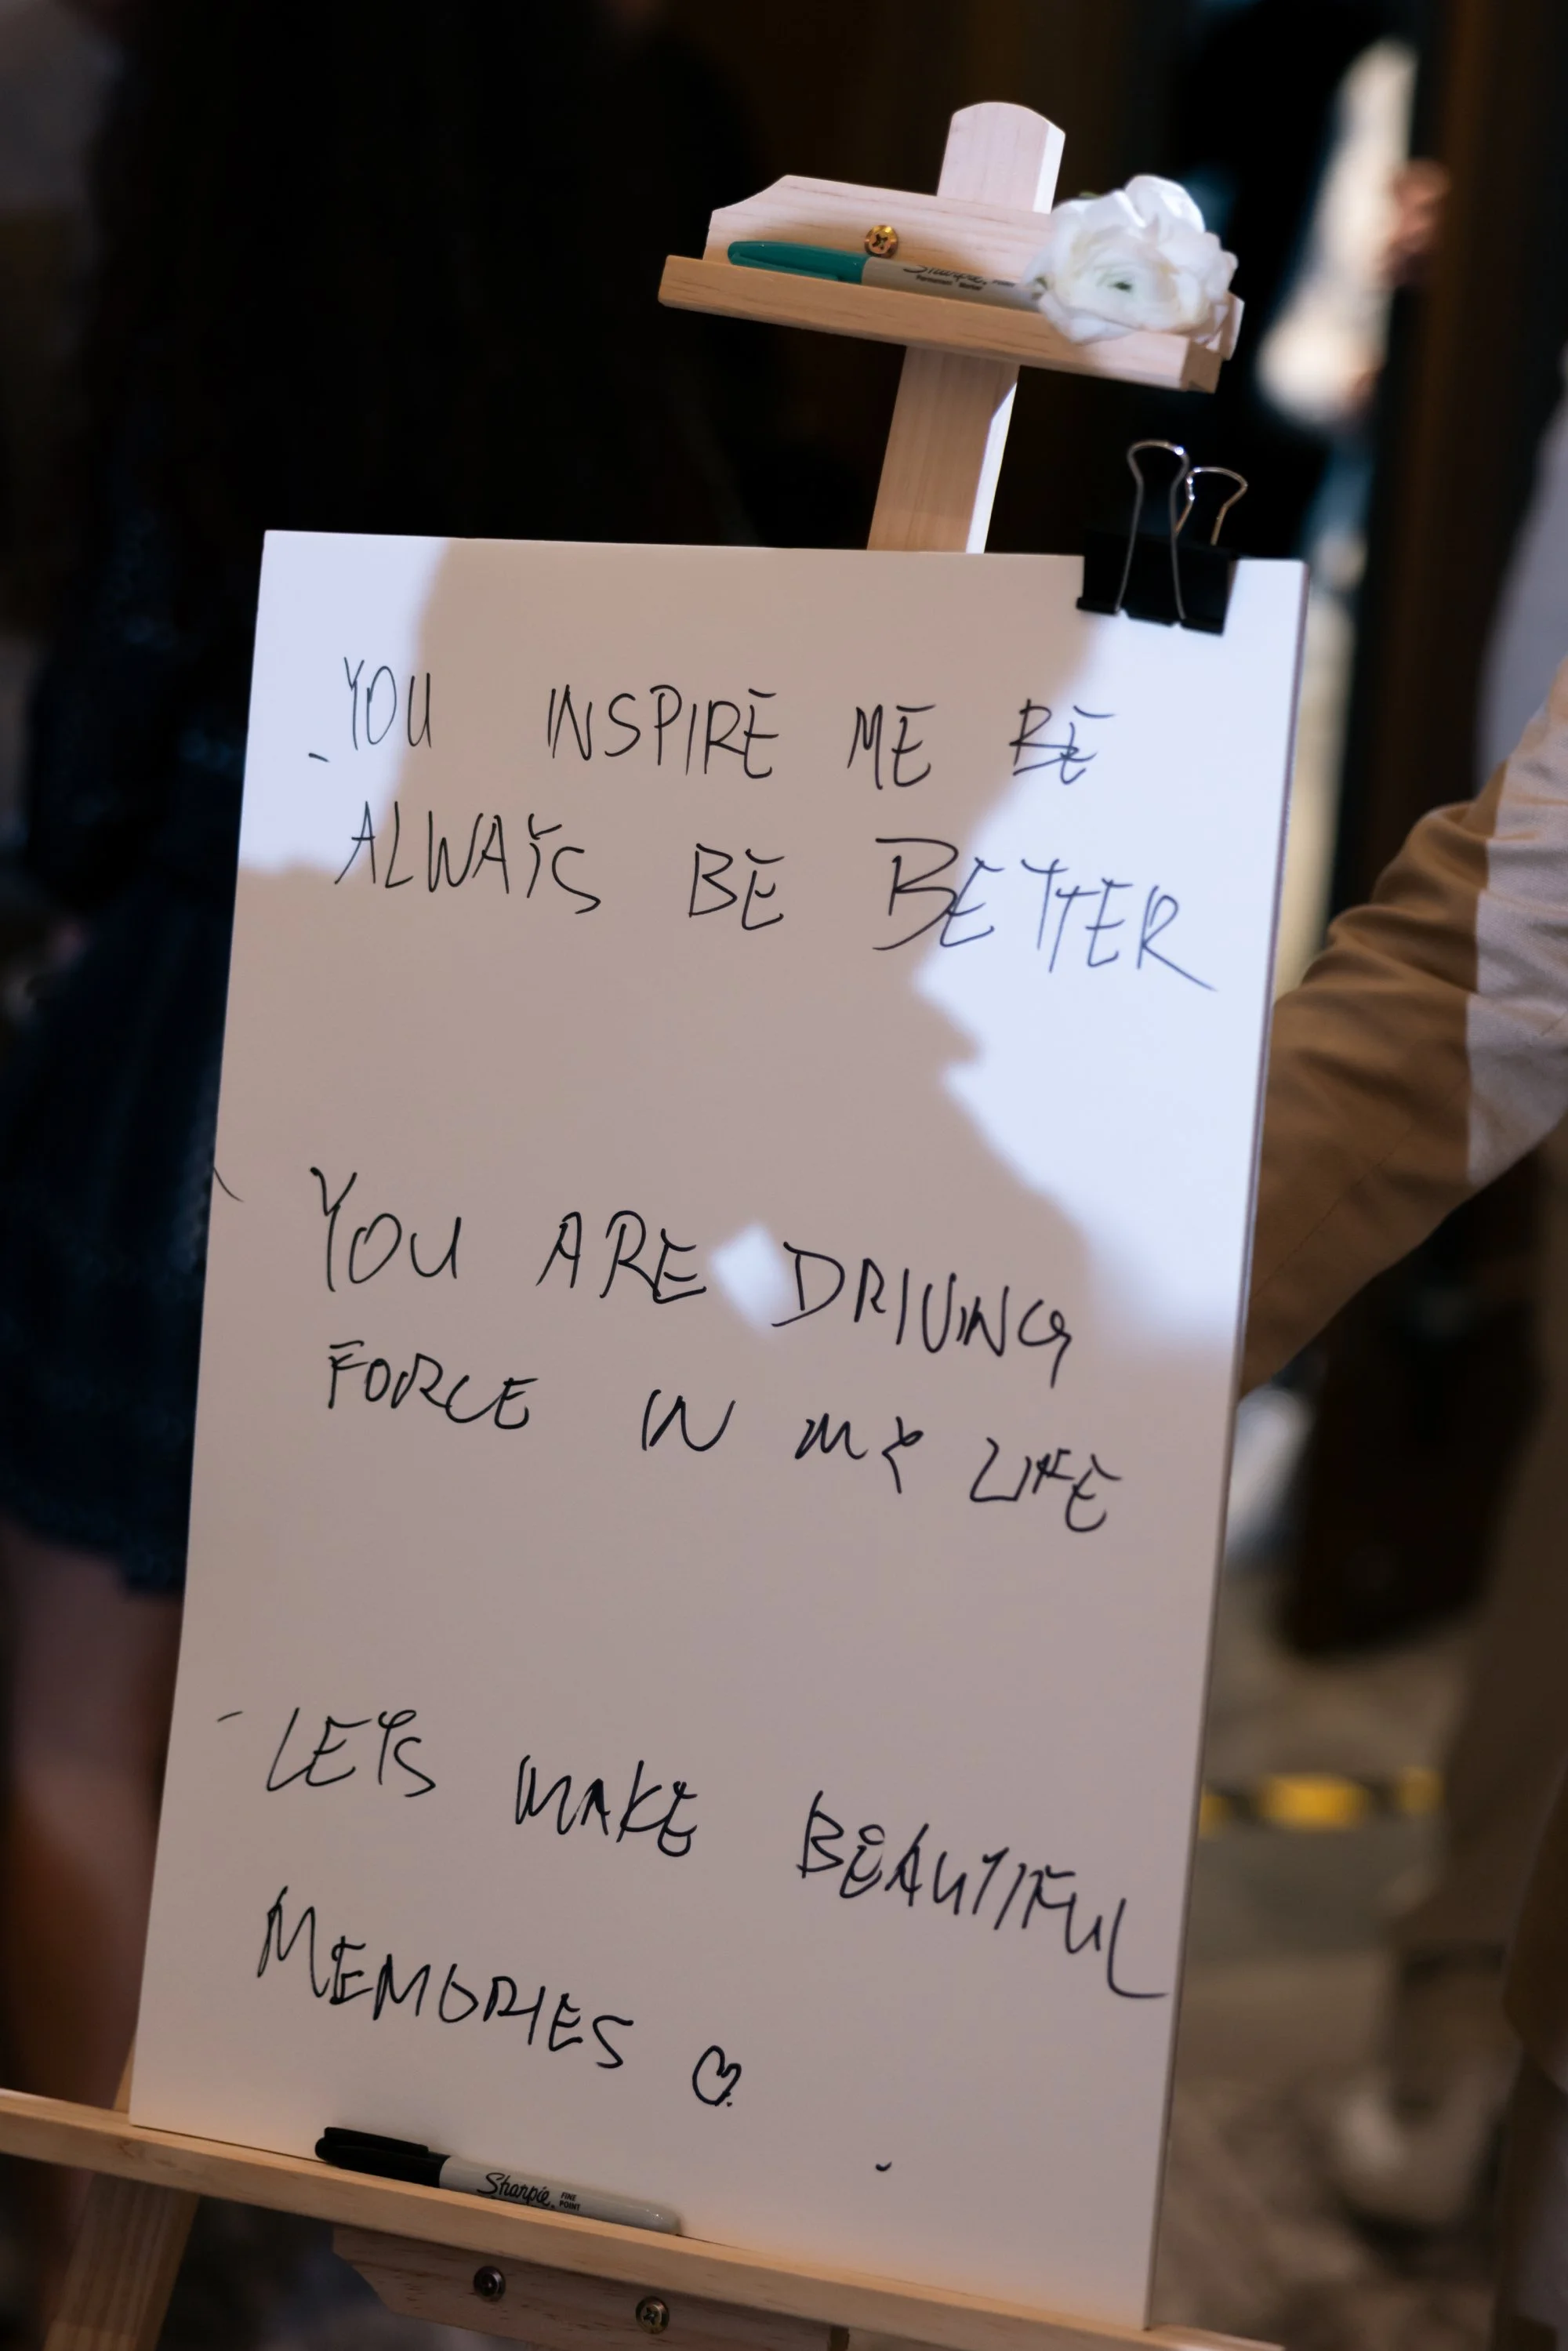 Sharpie
- YOU INSPIRE ME BE
ALWAYS BE BETTER
- YOU ARE DRIVING
FORCE IN MY LIFE
- LETS MAKE BEAUTIFUL
MEMORIES ♡
Sharpie. FINE POINT